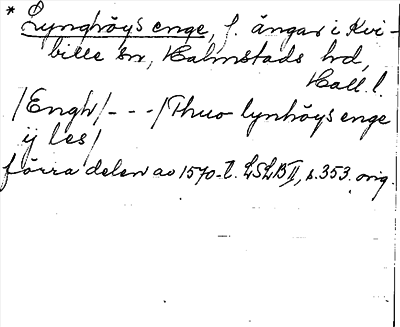 * Lynghöys enge, f. ängar i Kvi-
bille sn, Halmstads hd,
Hall. l.
/Engh/---/Thuo lynhöys enge
ij les/
förra delen av 1570-t. LSLB II, s. 353. orig.